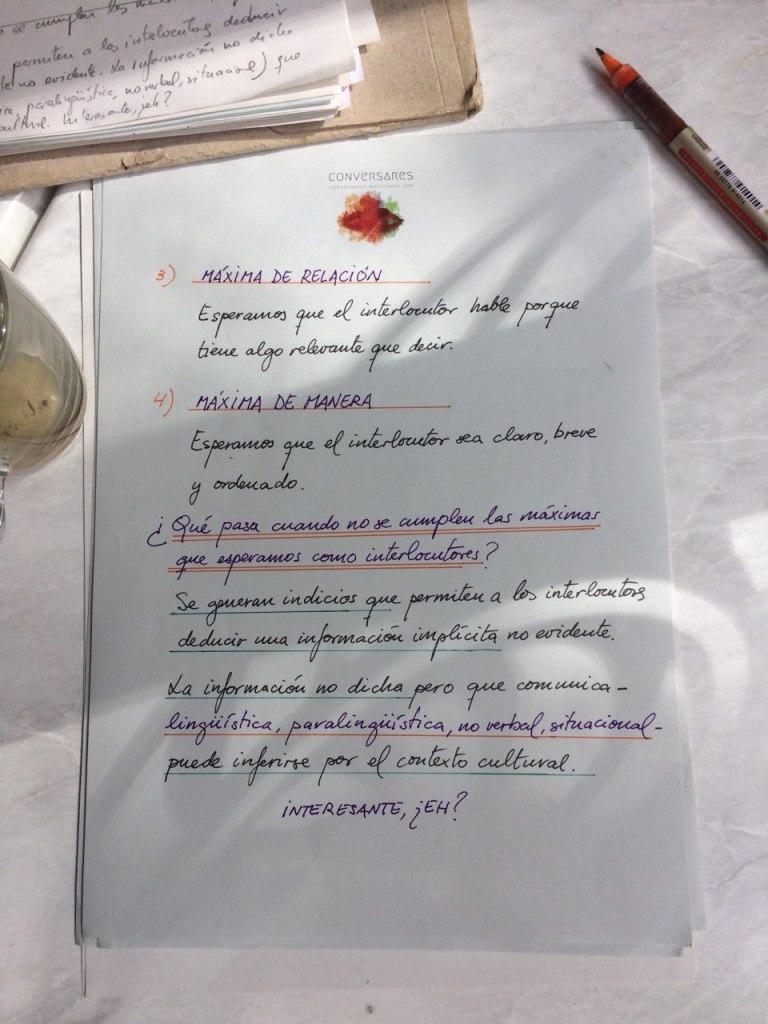 se cumplen las
permiten a los interlocutores deducir
no evidente. La información no dicha
paralingüística, no verbal, situacional) que
Interesante, ¿eh?
CONVERSARES
3) MÁXIMA DE RELACIÓN
Esperamos que el interlocutor hable porque
tiene algo relevante que decir.
4) MÁXIMA DE MANERA
Esperamos que el interlocutor sea claro, breve
y ordenado.
¿Qué pasa cuando no se cumplen las máximas
que esperamos como interlocutores?
Se generan indicios que permiten a los interlocutores
deducir una información implícita no evidente.
La información no dicha pero que comunica-
lingüística, paralingüística, no verbal, situacional-
puede inferirse por el contexto cultural.
INTERESANTE, ¿EH?